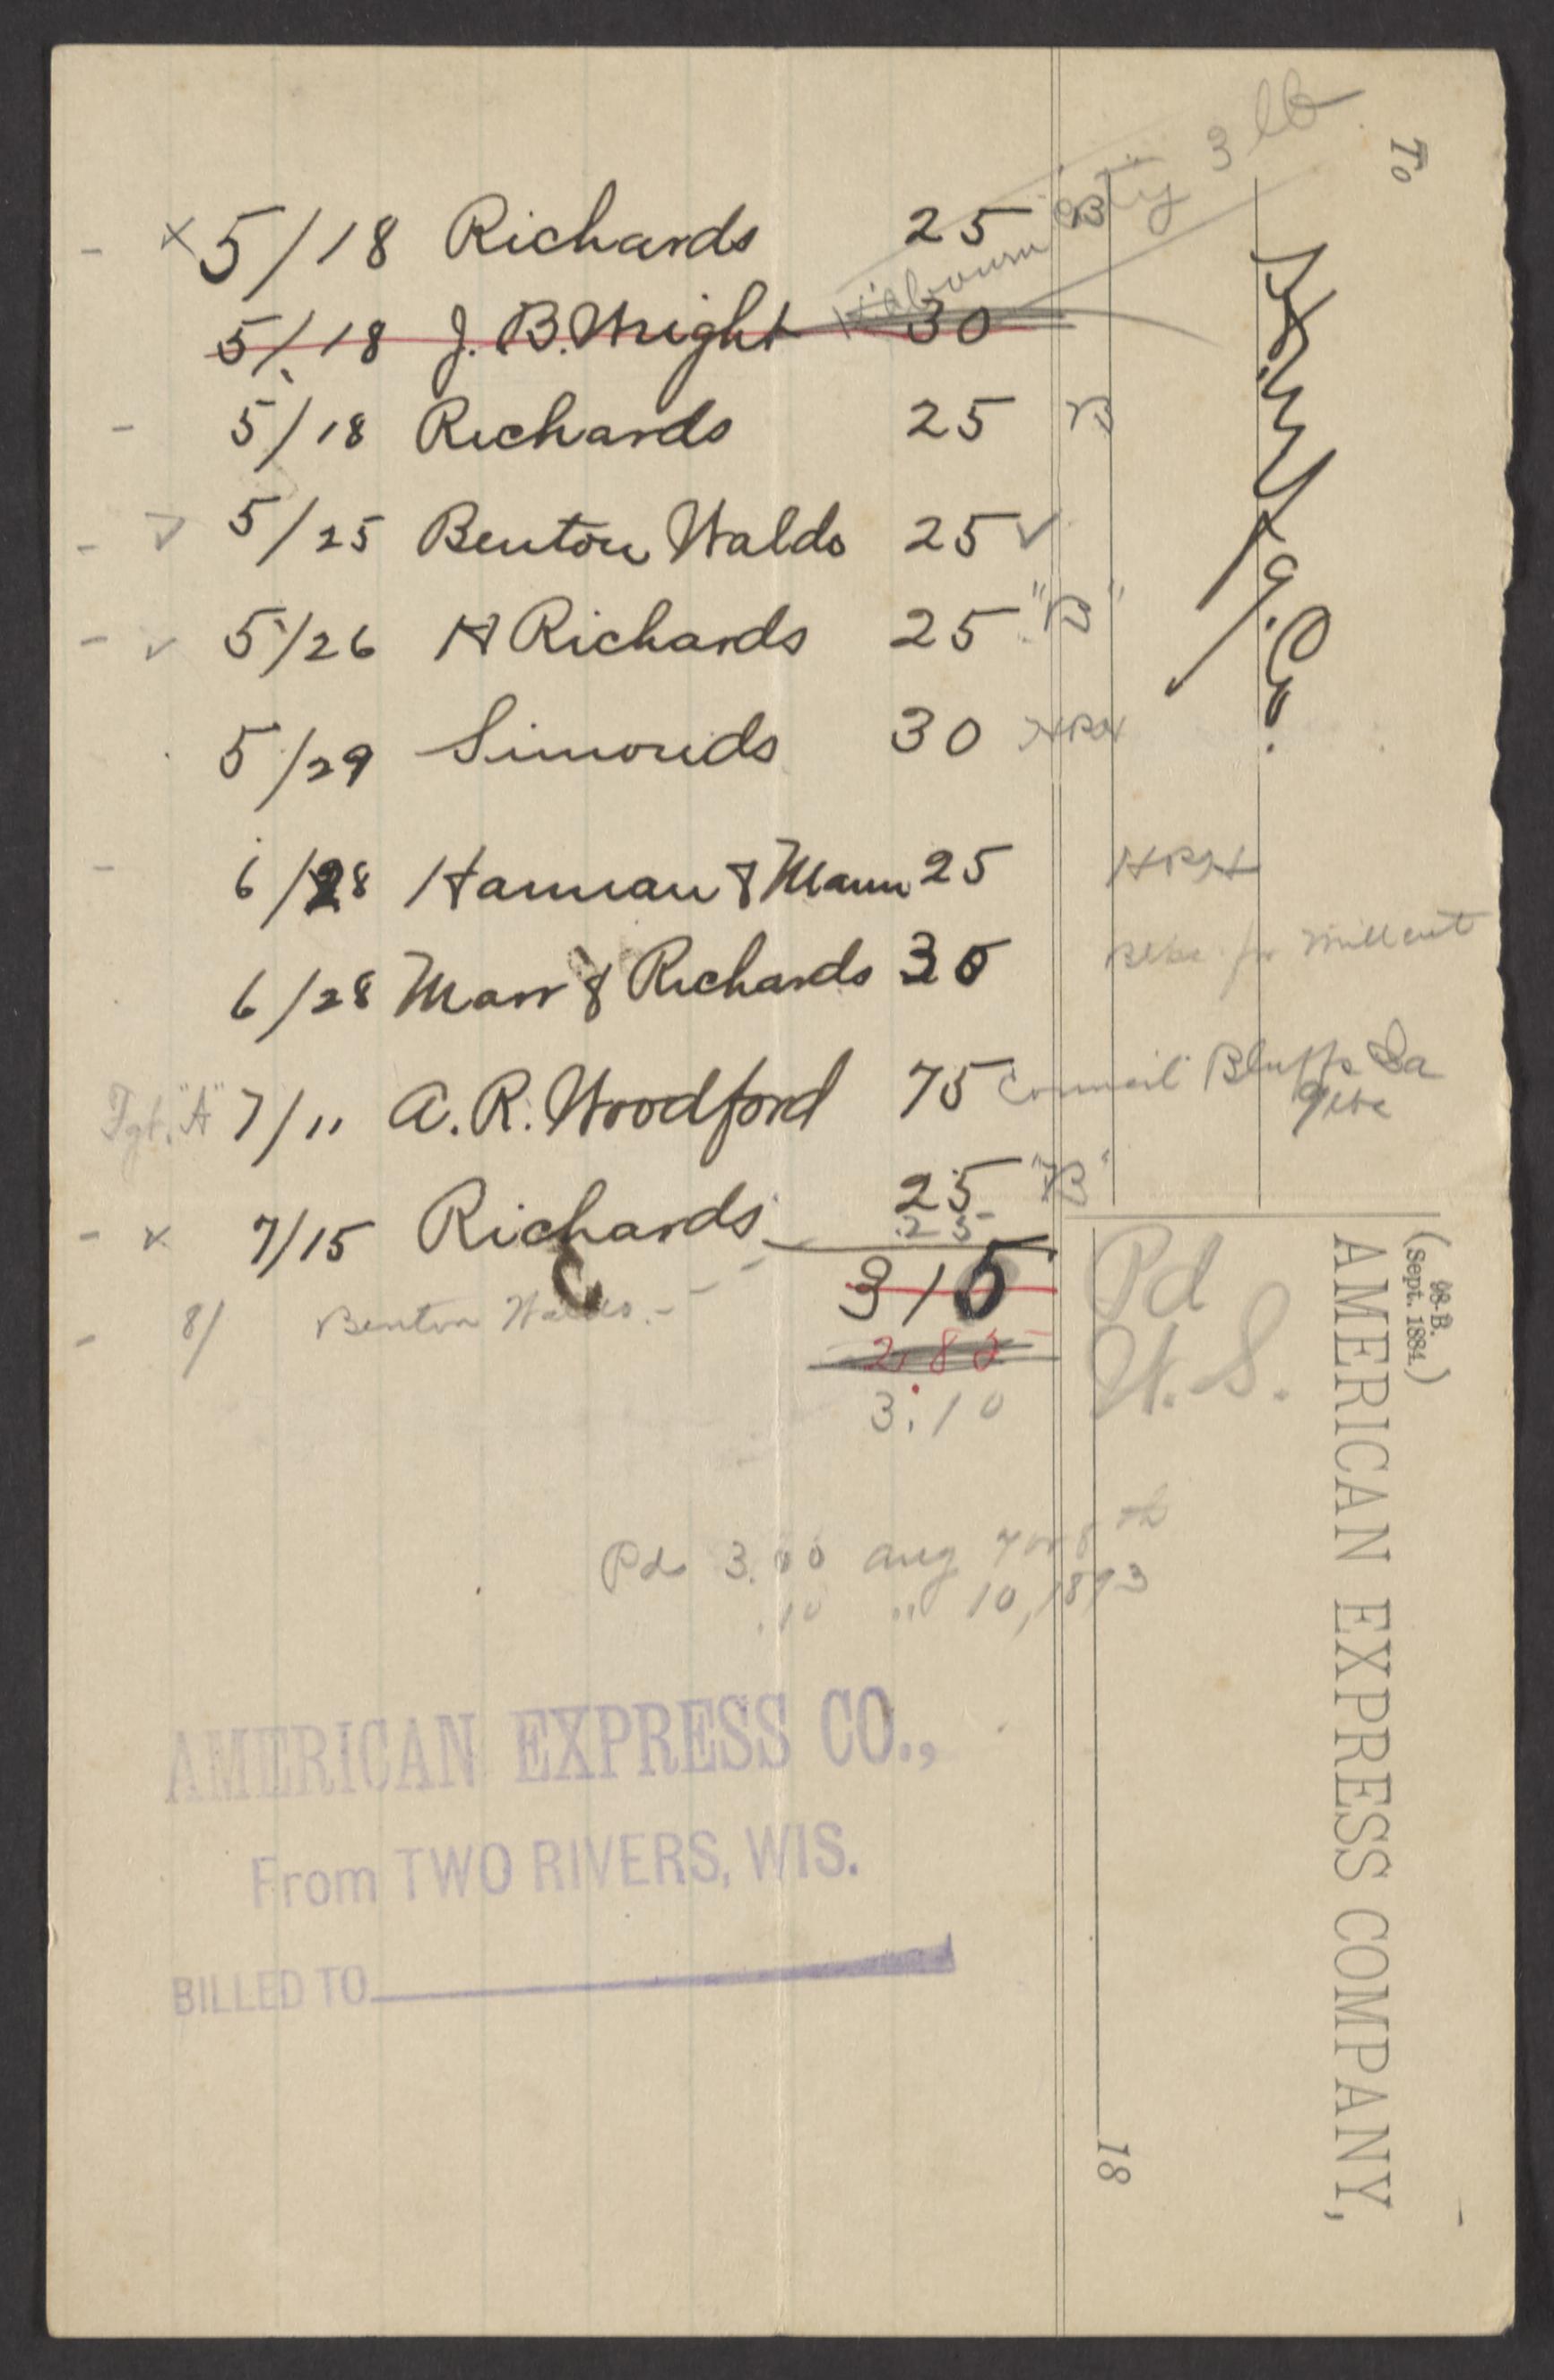 3 lb
To
x 5/18 Richards 25 B
5/18 J. B. Wright 30
5/18 Richards 25 B
5/25 Benton Waldo 25 ✓
5/26 H Richards 25 "B"
5/29 Simonds 30
6/28 & Mann 25
6/28 Marr & Richards 30
"A" 7/11 A. R. Woodford 75 Council Bluffs Ia
7/15 Richards 25 "B"
25
315
8/ Benton Waldo
2.85
3.10
Pd
H. S.
Pd 3.00 Aug 7 or 8th
.10 " 10, 1893
(98-B.
Sept. 1884.)
AMERICAN EXPRESS COMPANY,
18
AMERICAN EXPRESS CO.,
From TWO RIVERS, WIS.
BILLED TO